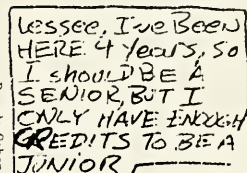 Lessee, I'VE BEEN
HERE 4 YeaRS, SO
I shoulD BE A
SENIOR, BUT I
ONLY HAVE ENOUGH
CREDITS TO BE A
JUNIOR